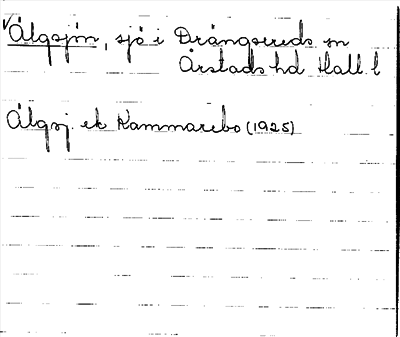 √Älgsjön, sjö i Drängsereds sn
Årstads hd Hall. l
Älgsj ek Kammarebo (1925)